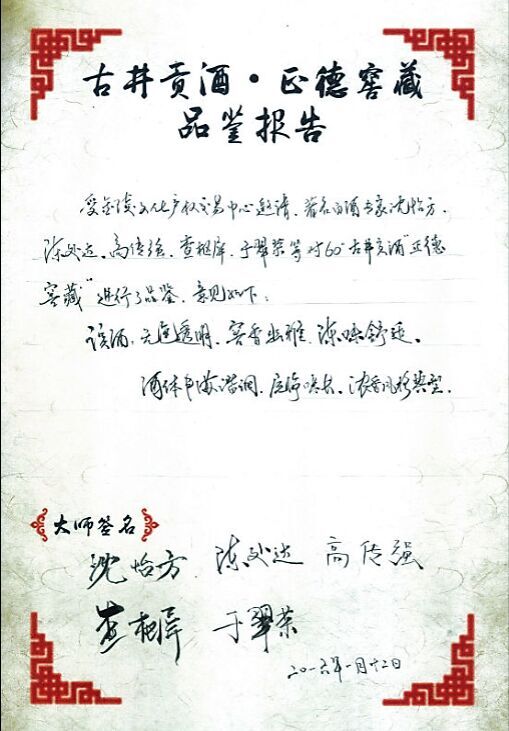 古井贡酒·正德窖藏
品鉴报告
受金陵文化产权交易中心邀请、著名白酒专家沈怡方、
陈处达、高传强、查枢屏、于翠荣等对60°古井贡酒“正德
窖藏”进行了品鉴、意见如下：
该酒，无色透明、窖香幽雅、陈味舒适、
酒体丰满谐调、后净味长、浓香风格典型。
大师签名
沈怡方 陈处达 高传强
查枢屏 于翠荣
二〇一六年一月十二日